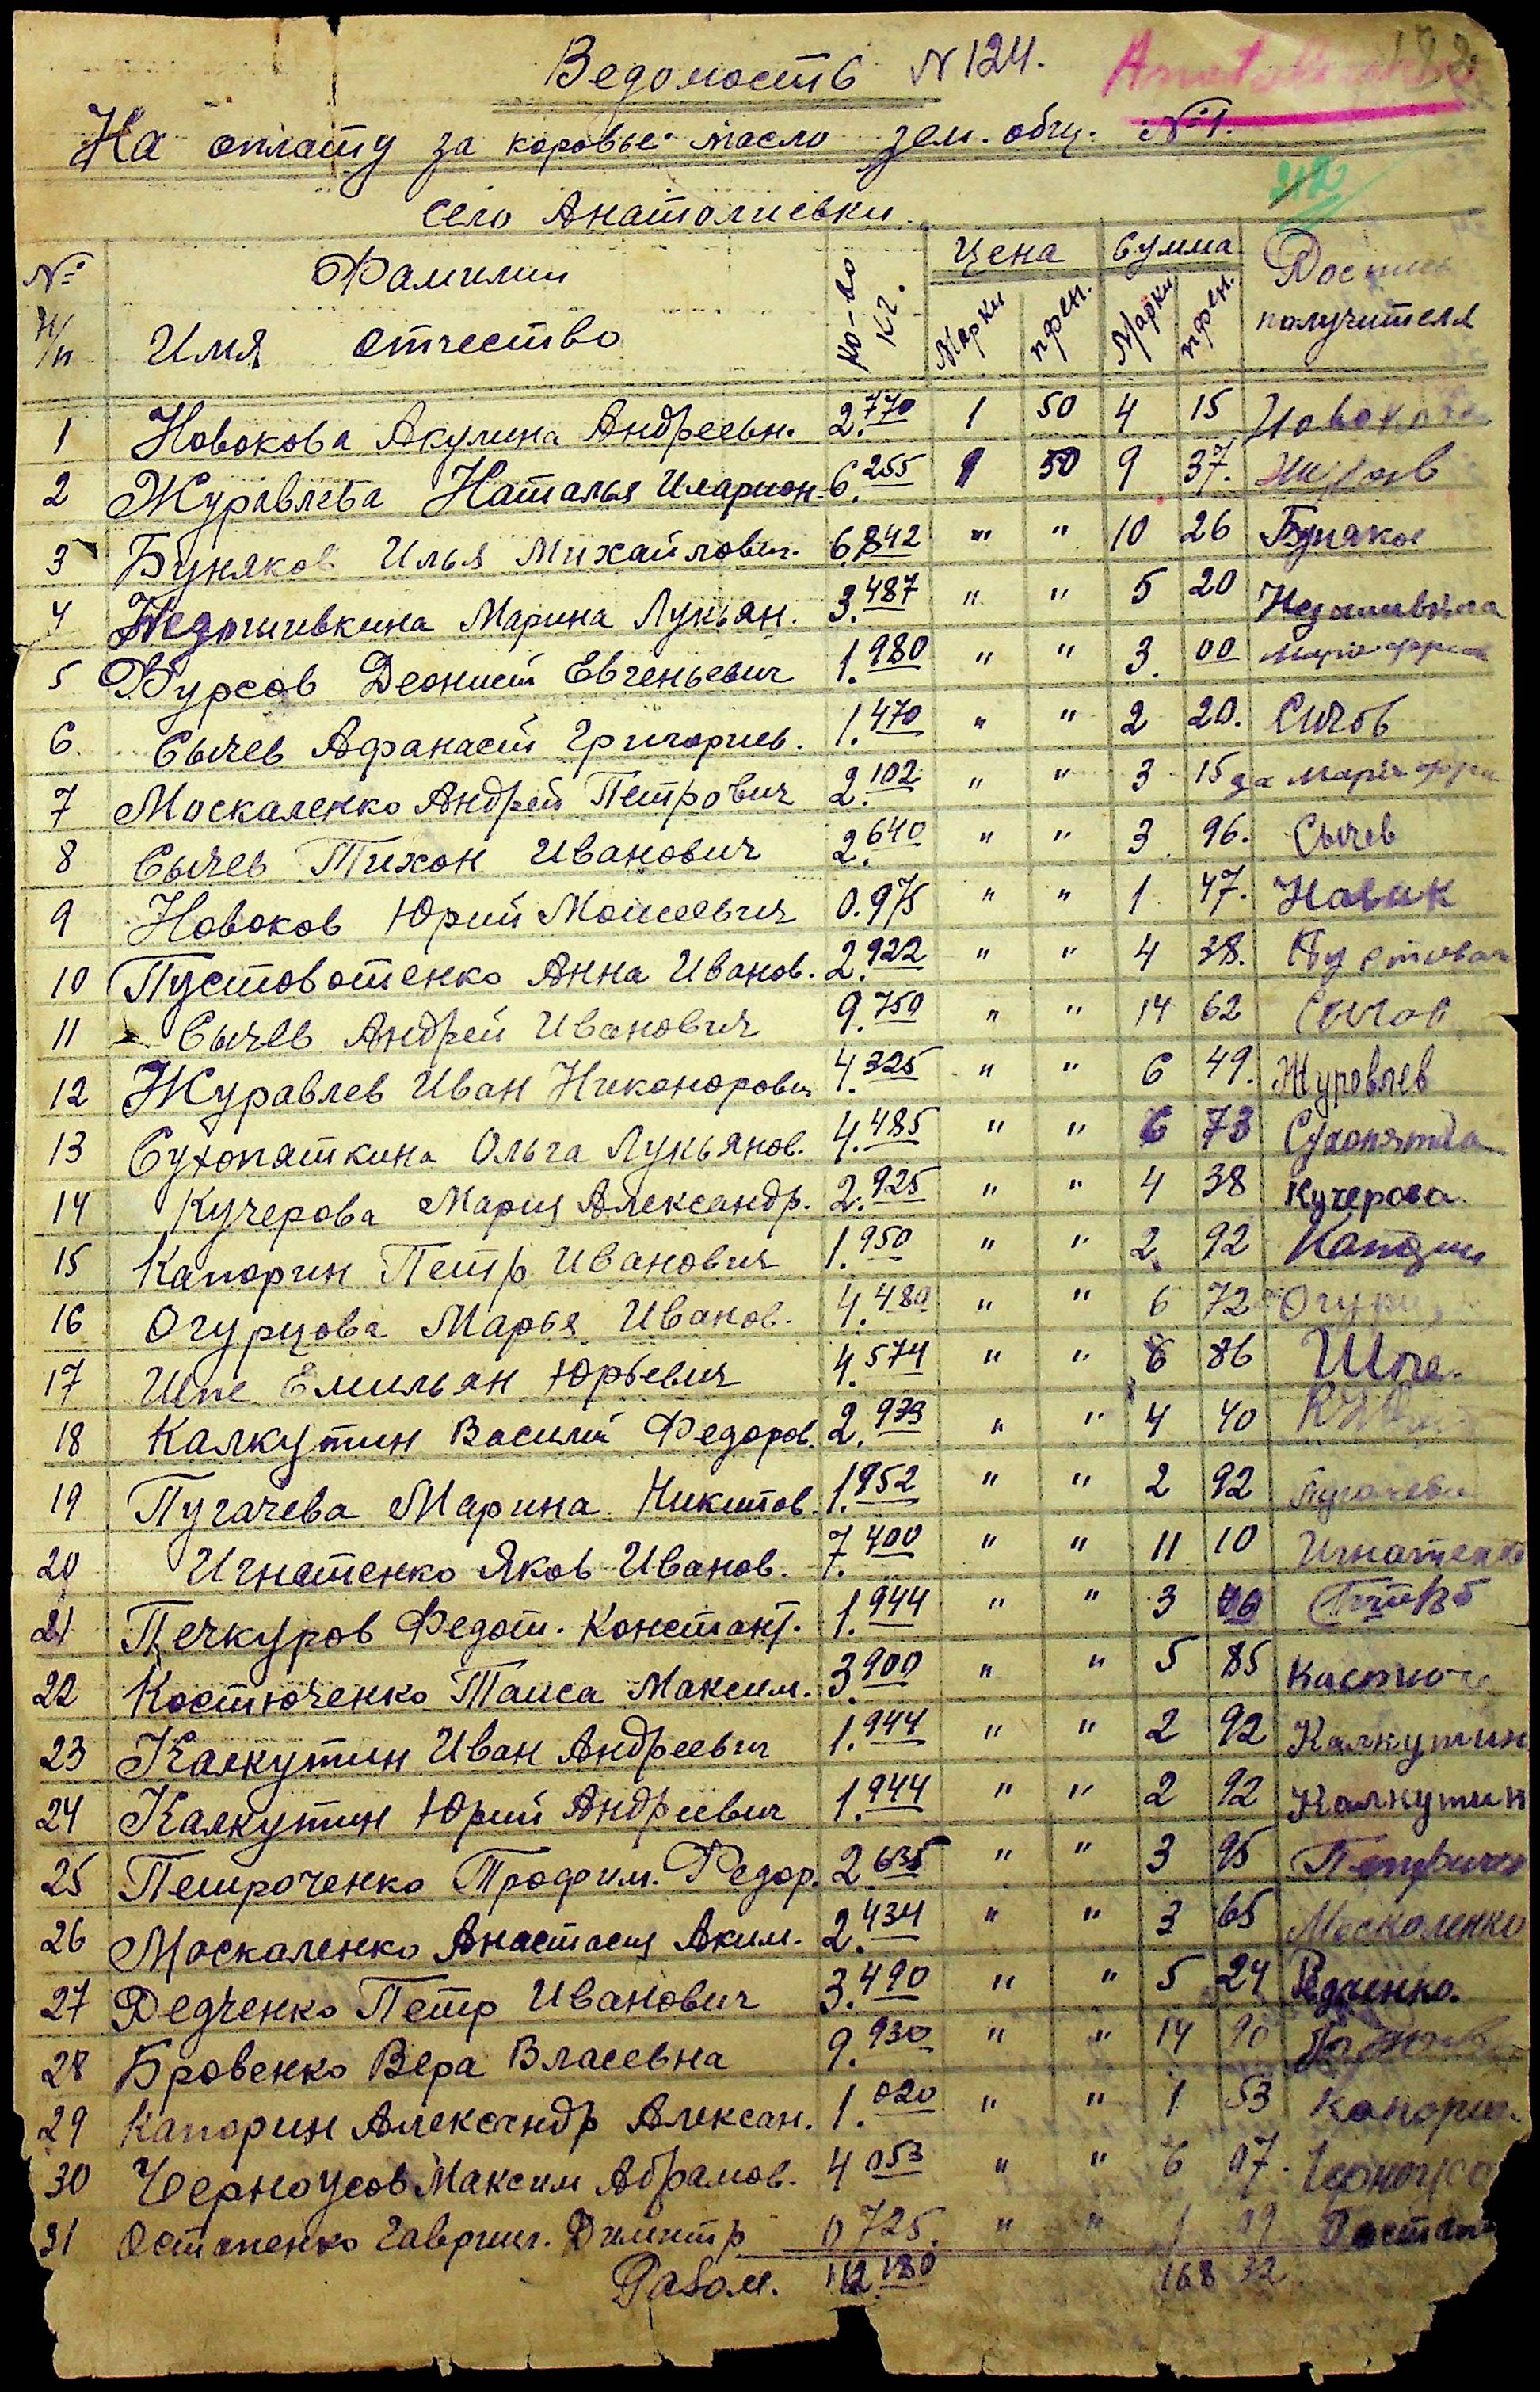 Ведомость N 124.
На оплату за коровье масло зем. общ. №1.
село Анатолиевки
№ н/п Фамилии Имя отчество ко-во кг. Цена Марки пфен. Сумма Марки пфен. Роспись получителя
1 Новокова Акулина Андреевн. 2.770 1 50 4 15 Новокова
2 Журавлева Наталья Иларион. 6.255 1 50 9 37.
3 Буняков Илья Михайлович. 6.842 " " 10 26 Буняков
4 Недошивкина Марина Лукьян. 3.487 " " 5 20
5 Фурсов Деонисй Евгеньевич 1.980 " " 3. 00
6. Сычев Афанасй Григориев. 1.470 " " 2 20. Сичов
7 Москаленко Андрей Петрович 2.102 " " 3 15 за Марія
8 Сычев Тихон Иванович 2.640 " " 3. 96. Сычев
9 Новоков Юрий Моисеевич 0.975 " " 1. 47. Новик
10 Пустовотенко Анна Иванов. 2.922 " " 4 38.
11 Сычев Андрей Иванович 9.750 " " 14 62
12 Журавлев Иван Никонорович 4.325 " " 6 49. Журовлев
13 Сухопяткина Ольга Лукьянов. 4.485 " " 6 73
14 Кучерова Мария Александр. 2.925 " " 4 38 Кучерова.
15 Капорин Петр Иванович 1.950 " " 2 92
16 Огурцова Марья Иванов. 4.480 " " 6 72
17 Шпе Емильян Юрьевич 4.574 " " 6 86 Шпе.
18 Калкутин Василий Федоров. 2.933 " " 4 40
19 Пугачева Марина Никитов. 1.952 " " 2 92 Пугачева
20 Игнатенко Яков Иванов. 7.400 " " 11 10 Игнатенко
21 Печкуров Федот. Констант. 1.944 " " 3
22 Костюченко Таиса Максим. 3.900 " " 5 85 Костюче
23 Калкутин Иван Андреевич 1.944 " " 2 92 Калкутин
24 Калкутин Юрий Андреевич 1.944 " " 2 92 Калкутин
25 Петроченко Трофим. Федор. 2.635 " " 3 95
26 Москаленко Анастасия Аким. 2.434 " " 3 65 Москаленко
27 Редченко Петр Иванович 3.490 " " 5 24 Редченко.
28 Бровенко Вера Власевна 9.930 " " 14 90
29 Капорин Александр Алексан. 1.020 " " 1 53 Капорин.
30 Черноусов Максим Абрамов. 4 053 " " 6 07.
31 Остапенко Гаврил. Димитр 0 725. " " 1 09
Разом. 112.180 168 32